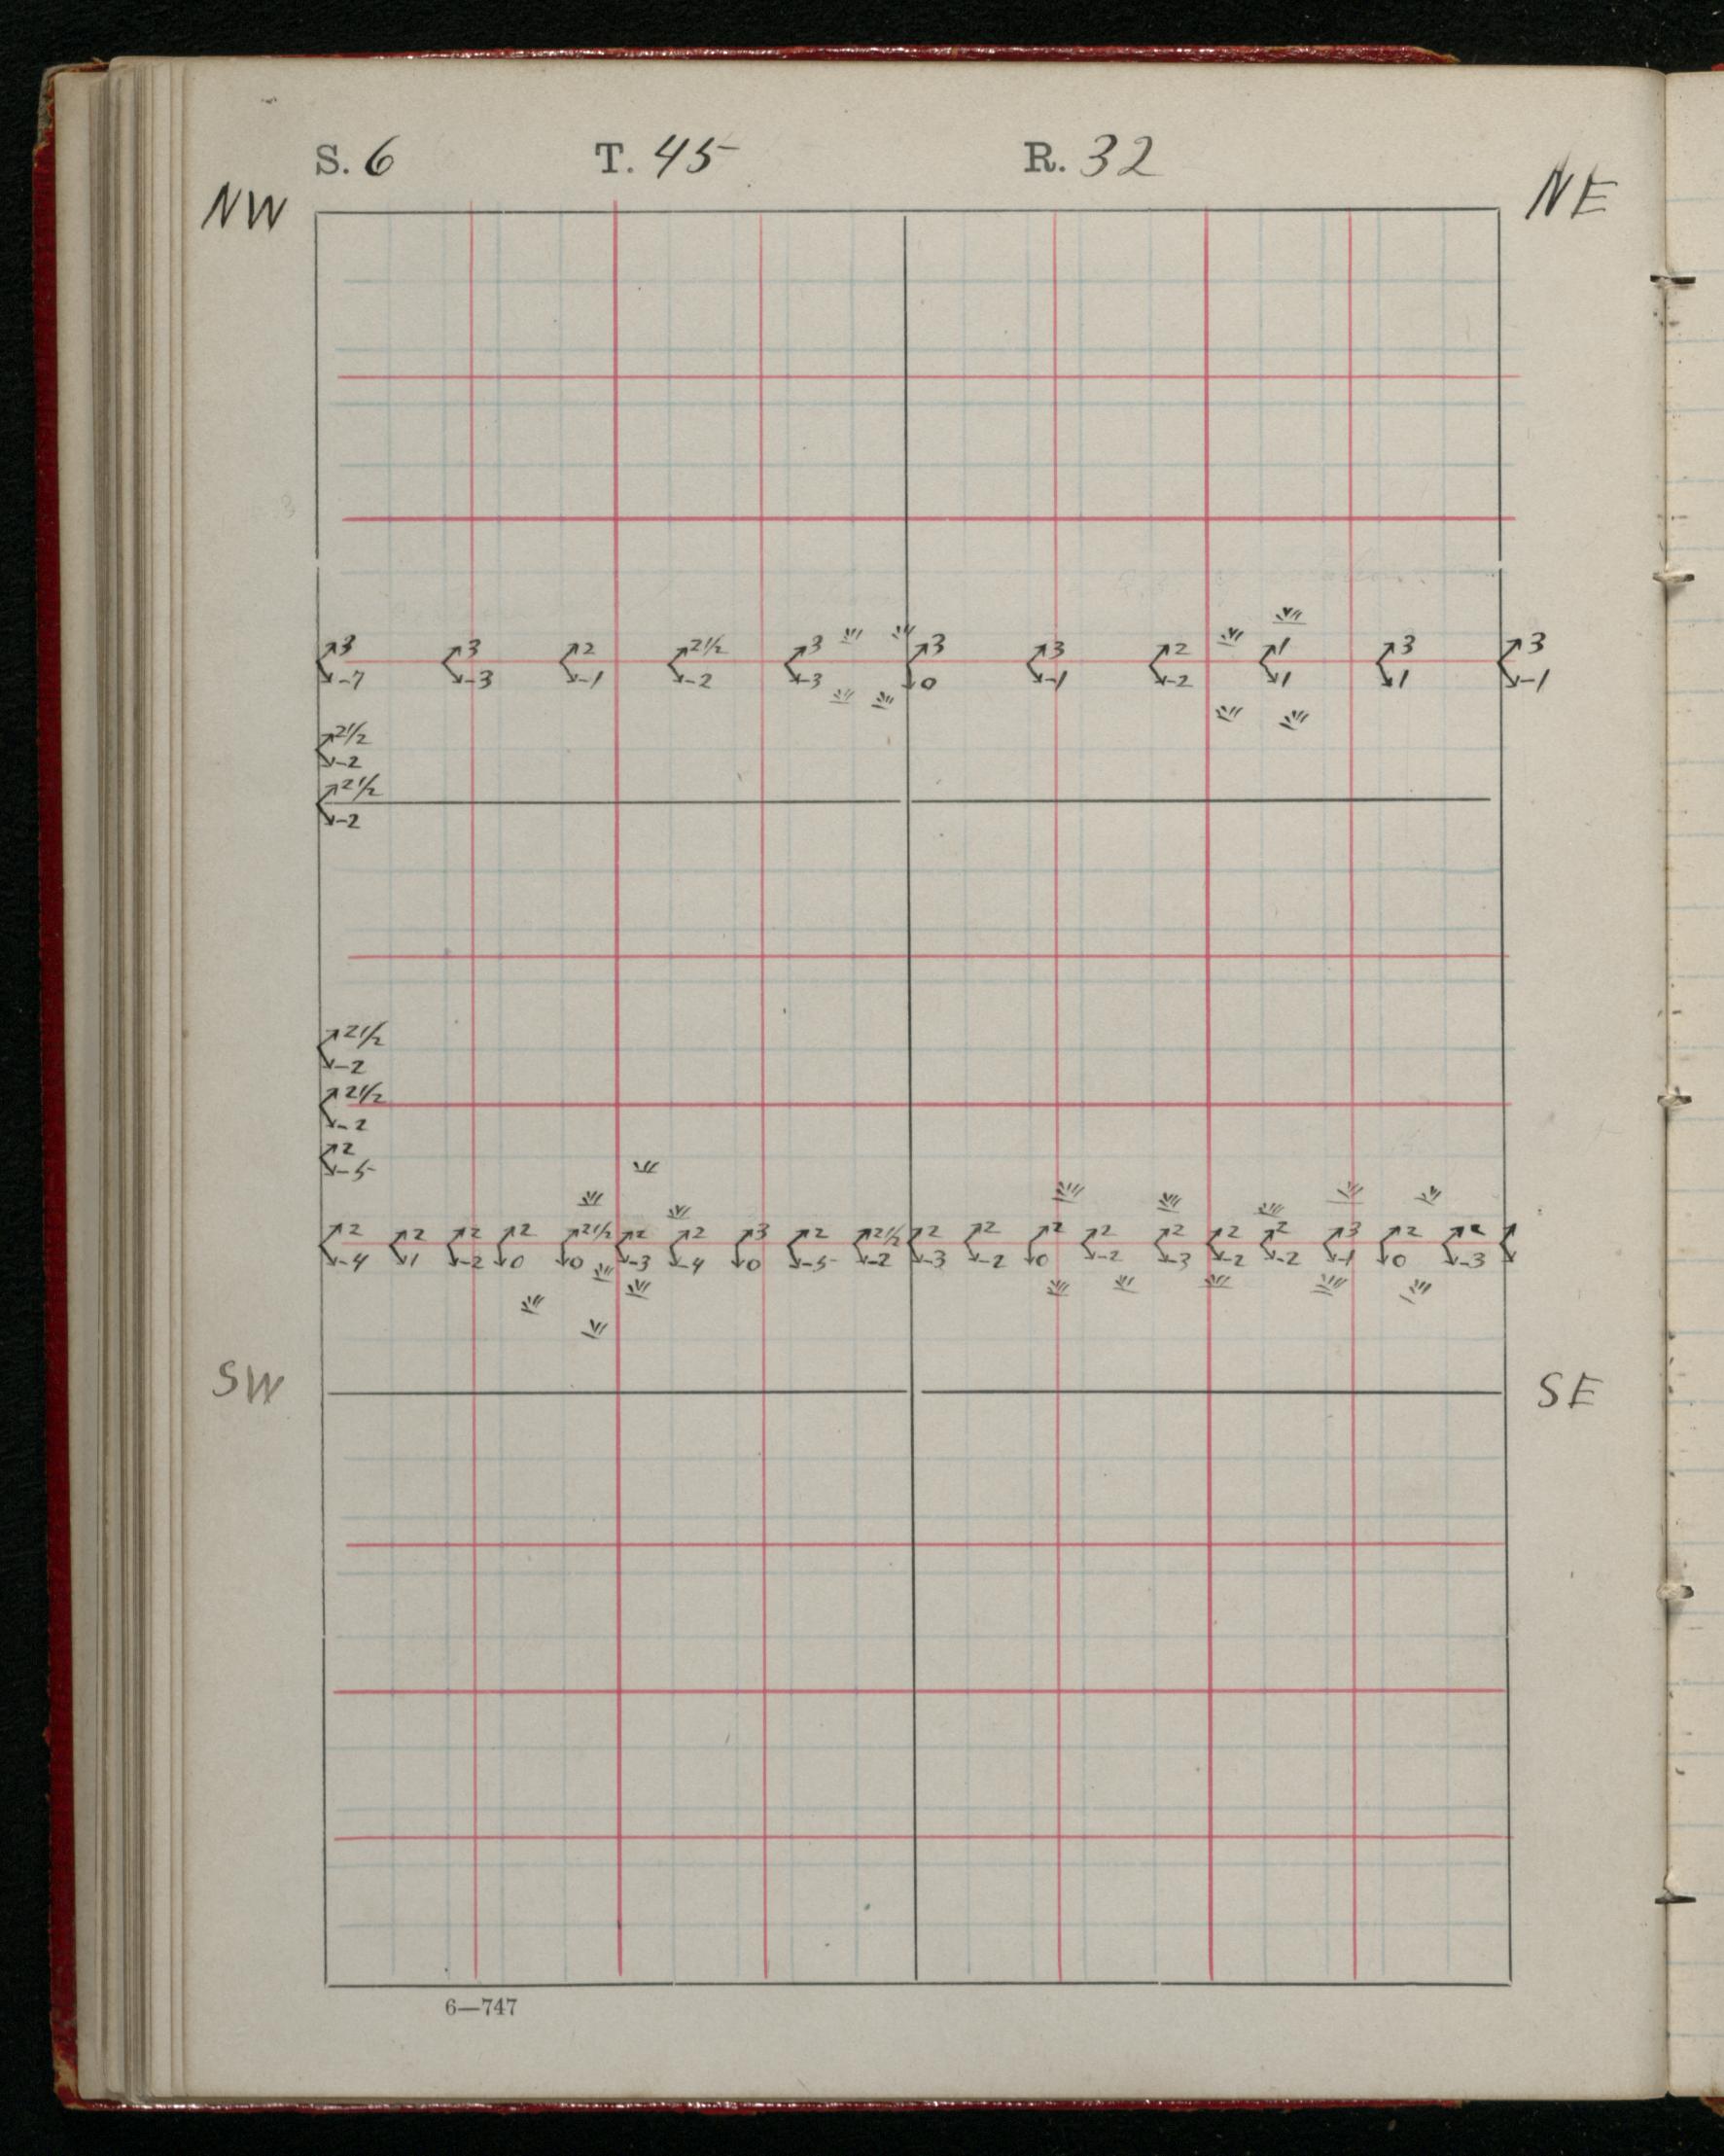 S. 6 T. 45 R. 32
NW NE
3 3 2 2½ 3 3 3 2 1 3 3
-7 -3 -1 -2 -3 0 -1 -2 1 1 -1
2½
-2
2½
-2
2½
-2
2½
-2
2
-5
2 2 2 2 2½ 2 2 3 2 2½ 2 2 2 2 2 2 2 3 2 2
-4 1 -2 0 0 -3 -4 0 -5 -2 -3 -2 0 -2 -3 -2 -2 -1 0 -3
SW SE
6—747